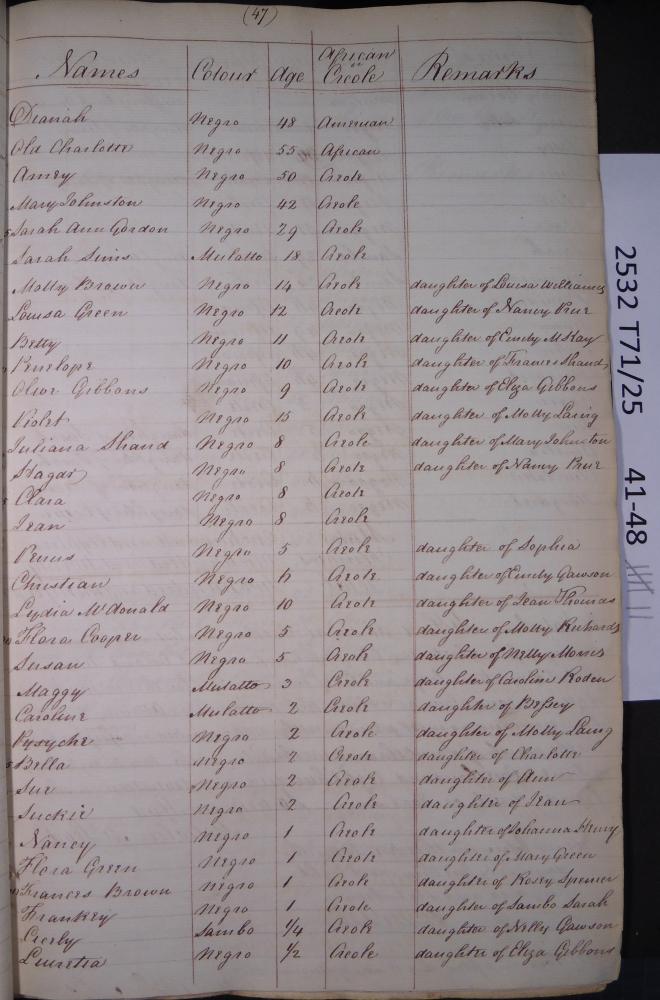 (47)
Names Colour Age African or Creole Remarks
Dianah Negro 48 American
Old Charlotte Negro 55 African
Amey Negro 50 Creole
Mary Johnston Negro 42 Creole
Sarah Ann Gordon Negro 29 Creole
Sarah Sims Mulatto 18 Creole
Molly Brown Negro 14 Creole daughter of Louisa Williams
Louisa Green Negro 12 Creole daughter of Nancy
Betty Negro 11 Creole daughter of Emily McKay
Penelope Negro 10 Creole daughter of Frances Shand
Olive Gibbons Negro 9 Creole daughter of Eliza Gibbons
Violet Negro 15 Creole daughter of Molly Laing
Juliana Shand Negro 8 Creole daughter of Mary Johnston
Hagar Negro 8 Creole daughter of Nancy
Clara Negro 8 Creole
Jean Negro 8 Creole
Venus Negro 5 Creole daughter of Sophia
Christian Negro Creole daughter of Emily Gawson
Lydia McDonald Negro 10 Creole daughter of Jean Thomas
Flora Cooper Negro 5 Creole daughter of Molly Richards
Susan Negro 5 Creole daughter of Nelly Morris
Maggy Mulatto 3 Creole daughter of Caroline Roden
Caroline Mulatto 2 Creole daughter of Bessey
Psyche Negro 2 Creole daughter of Molly Laing
Bella Negro 2 Creole daughter of Charlotte
Sue Negro 2 Creole daughter of Ann
Suckie Negro 2 Creole daughter of Jean
Nancy Negro 1 Creole daughter of Johanna Henry
Flora Green Negro 1 Creole daughter of Mary Green
Frances Brown Negro 1 Creole daughter of Rosey Spencer
Frankey Negro 1 Creole daughter of Sambo Sarah
Sambo 1/4 Creole daughter of Nelly Gawson
Lucretia Negro 1/2 Creole daughter of Eliza Gibbons
2532 T71/25 41-48